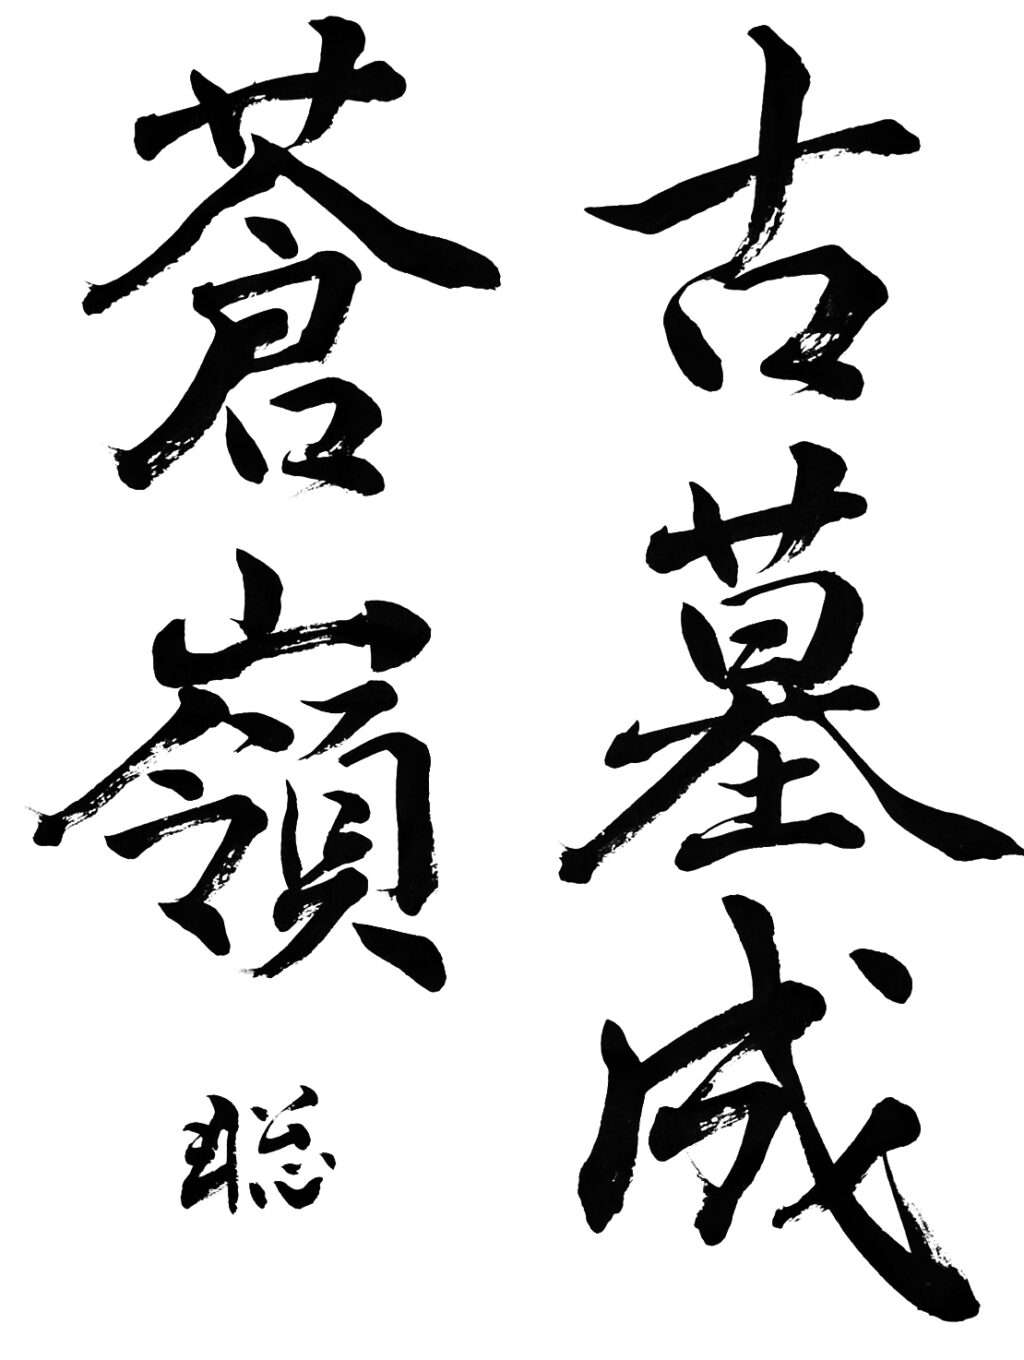 古墓成
蒼嶺
聡